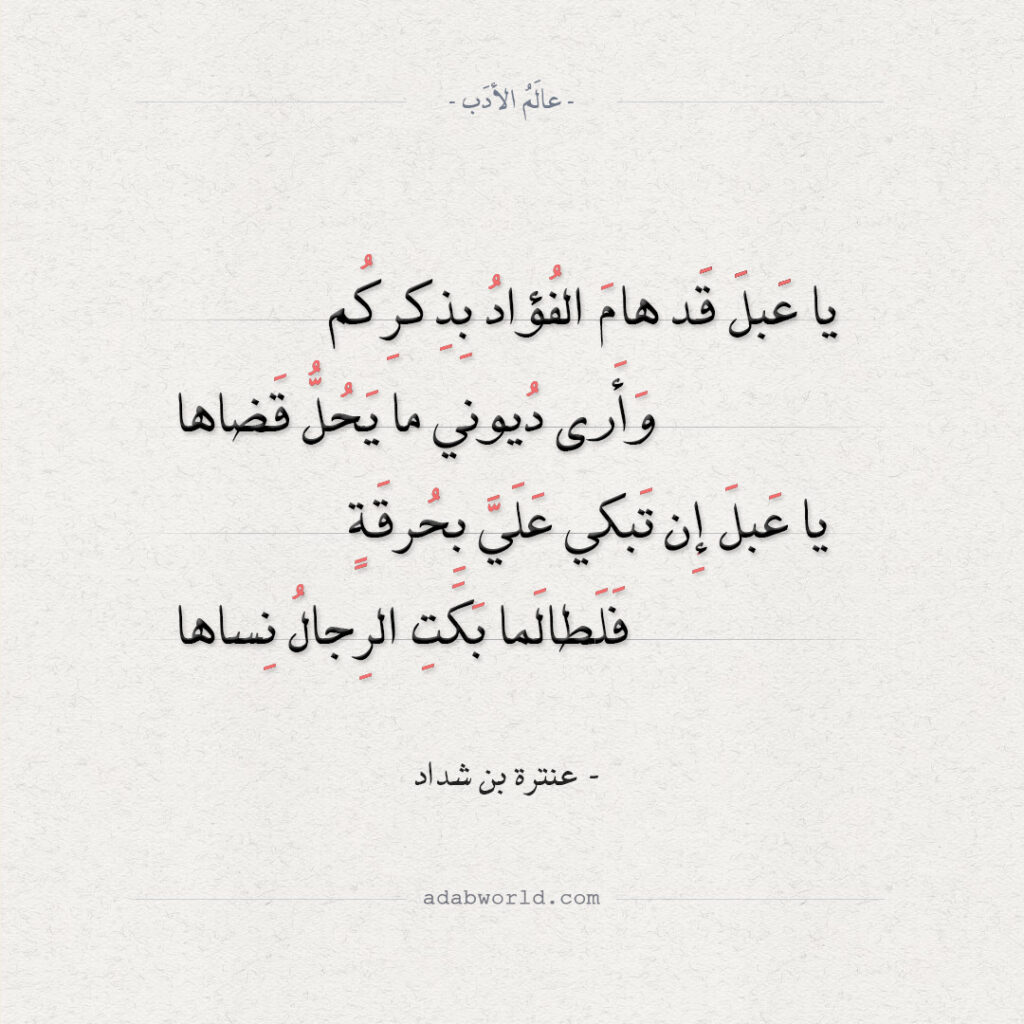 - عالَمُ الأدَب -
يا عَبلَ قَد هامَ الفُؤادُ بِذِكرِكُم
وَأَرى دُيوني ما يَحُلُّ قَضاها
يا عَبلَ إِن تَبكي عَلَيَّ بِحُرقَةٍ
فَلَطالَما بَكَتِ الرِجالُ نِساها
- عنترة بن شداد
adabworld.com